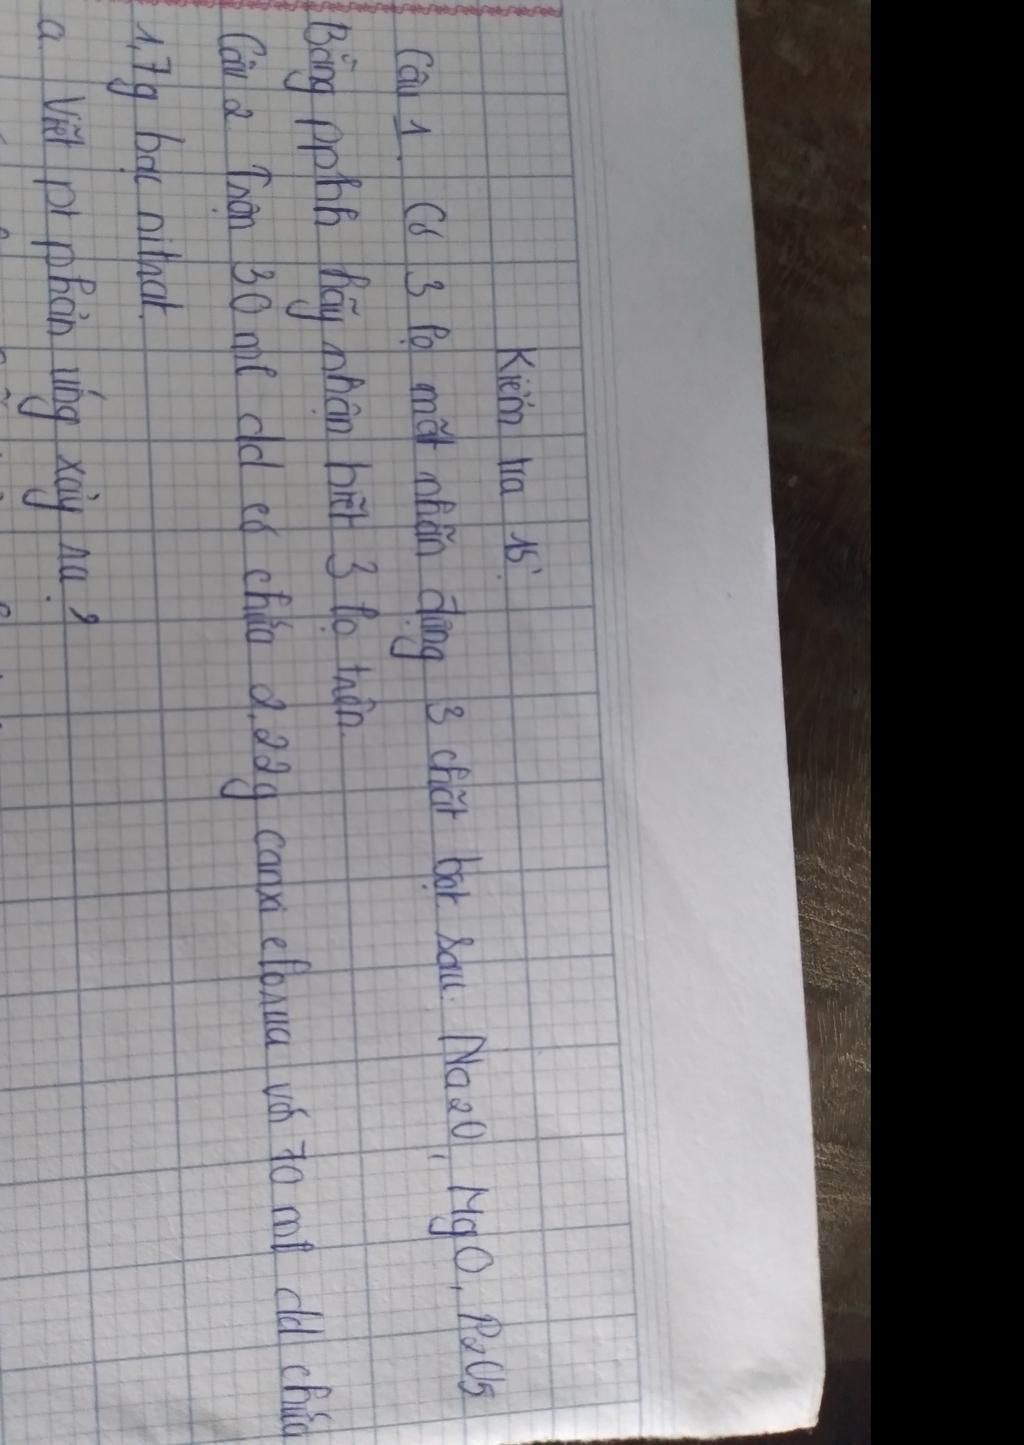 Kiểm tra 15'
Câu 1. Có 3 lọ mất nhãn đựng 3 chất bột sau: Na2O, MgO, P2O5
Bằng ppbh hãy nhận biết 3 lọ trên.
Câu 2 Trộn 30 ml dd có chứa 2,22g canxi clorua với 70 ml dd chứa
1,7g bạc nitrat.
a. Viết pt phản ứng xảy ra?